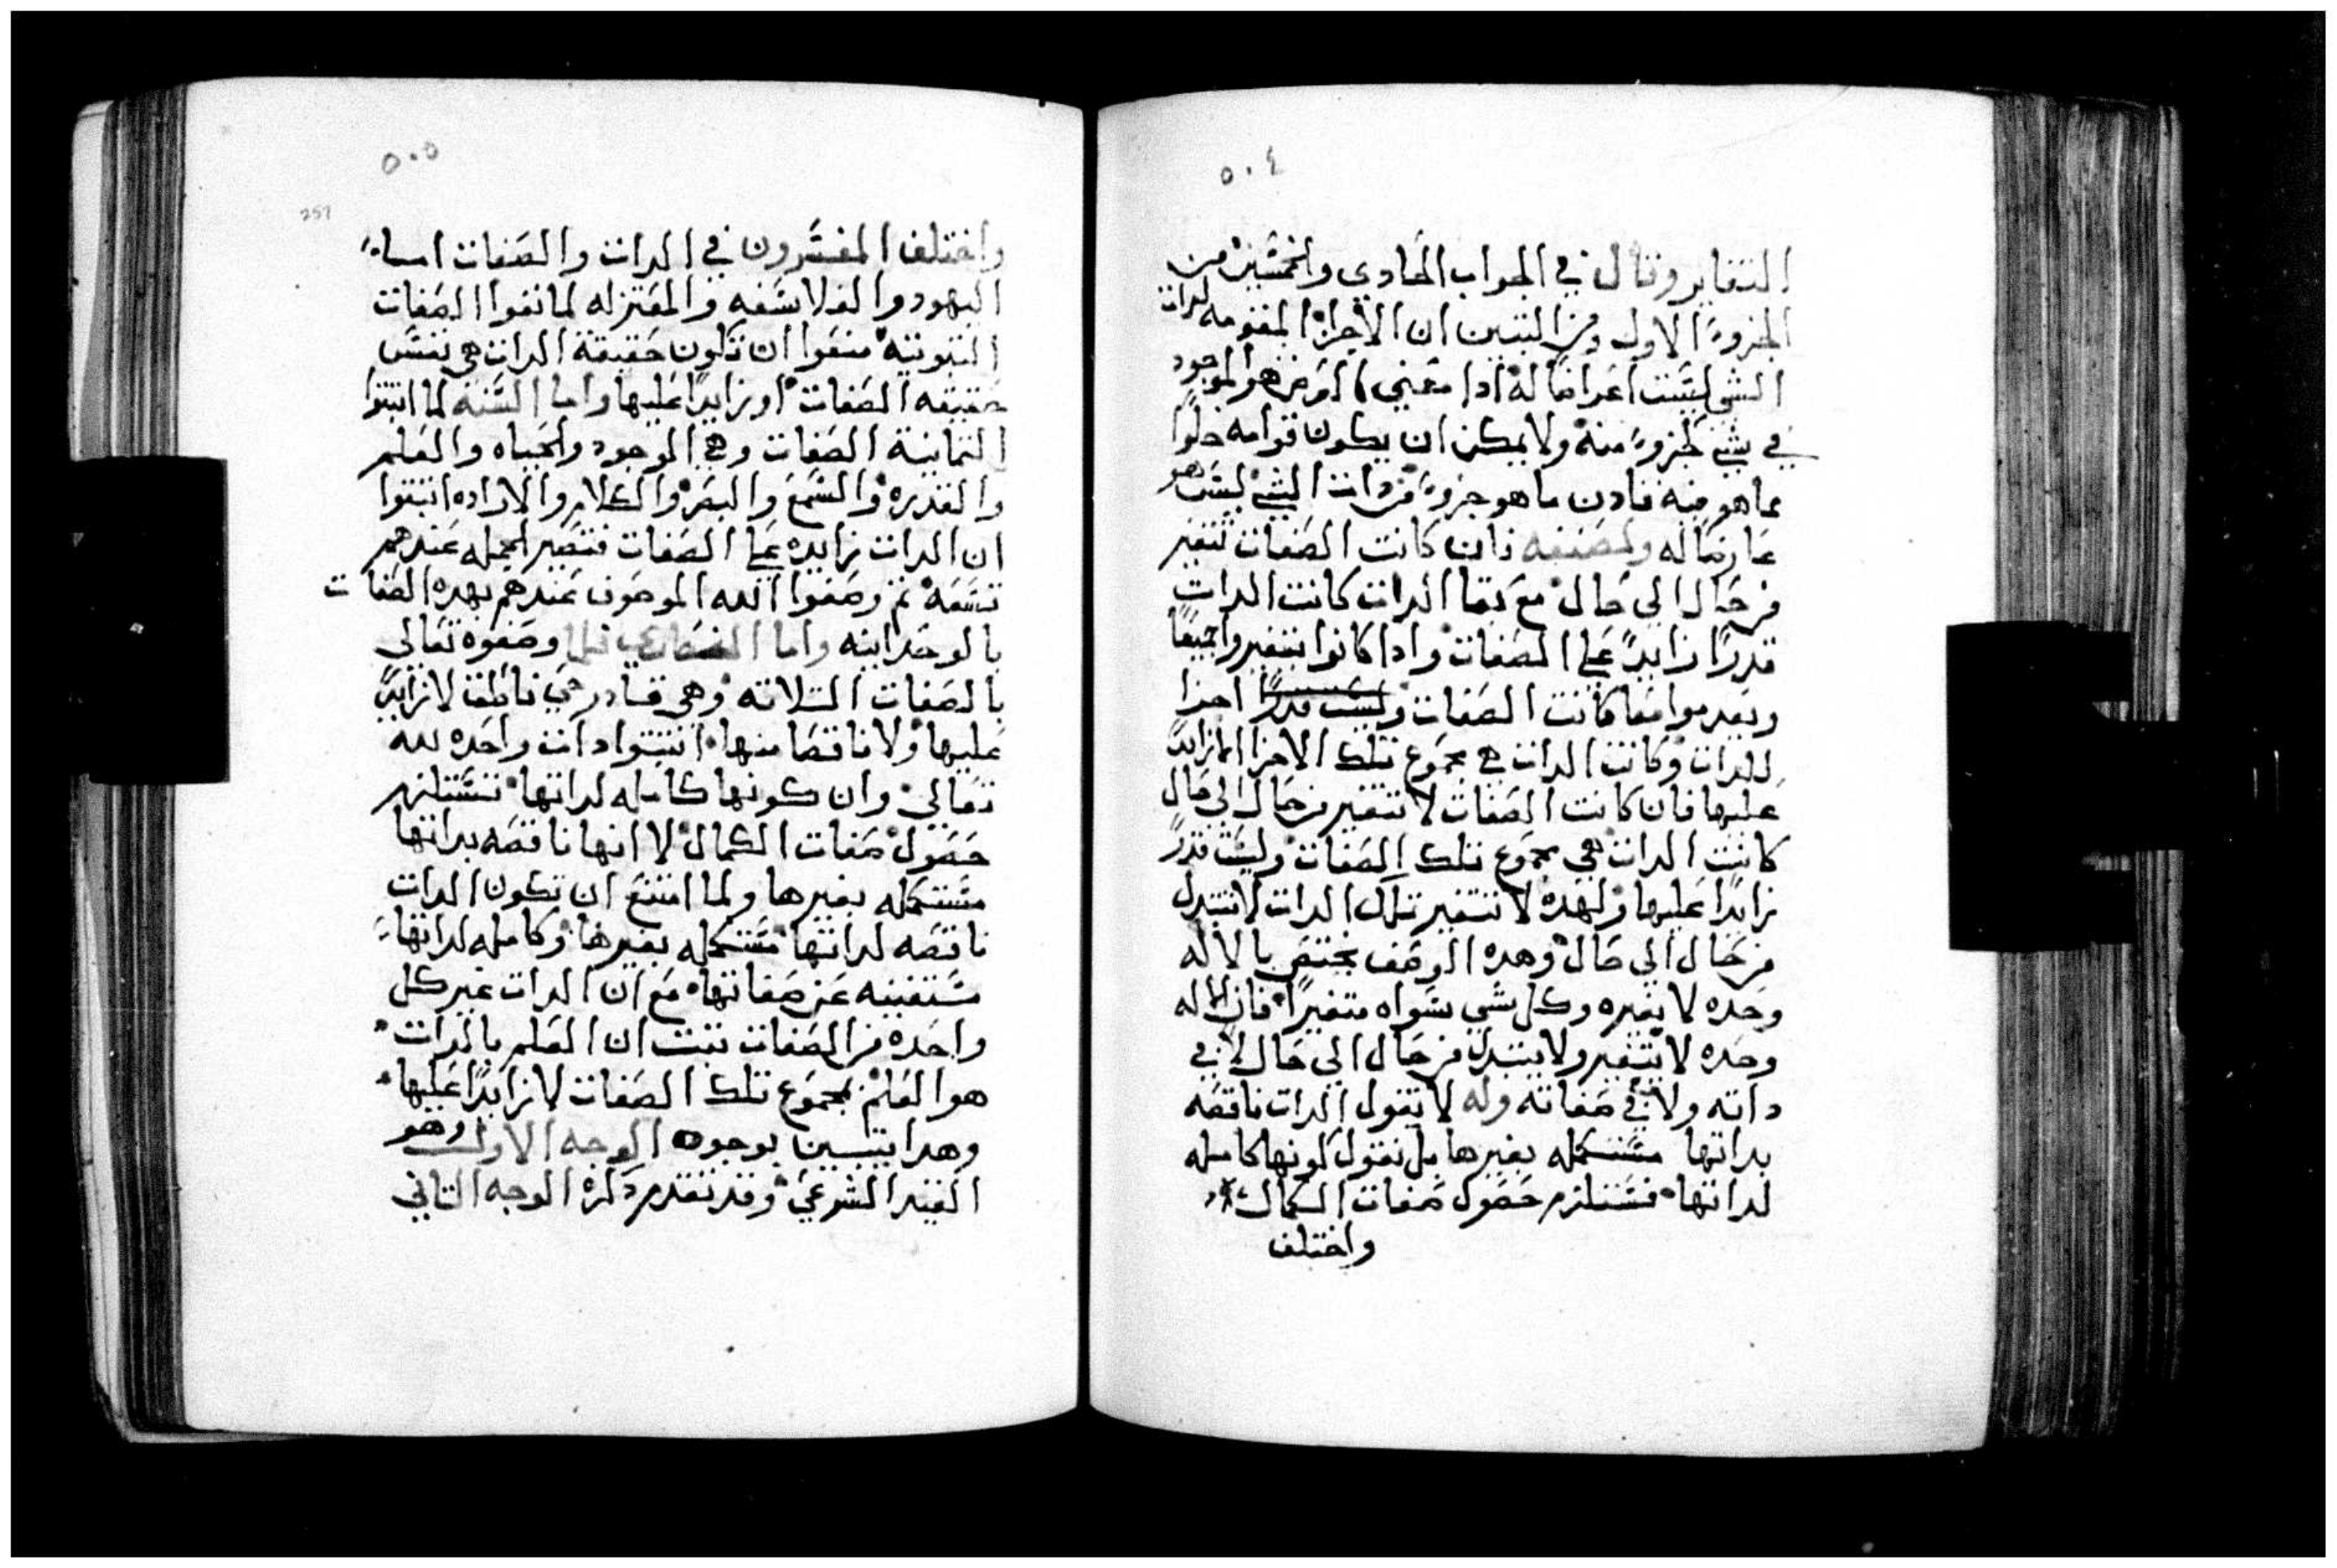 ٥٠٤
التغاير وقال في الجواب الحادي والخمسين من
الجزو الاول ومن البين ان الاجزا المقومه لدات
الشي ليست اعراضا له ادا معني العرض هو الموجود
في شي لجزو منه ولا يمكن ان يكون قوامه خلوا
مما هو فيه فادن ما هو جزو من دات الشي ليس هو
عارضا له ولمصنفه فان كانت الصفات تتغير
من حال الي حال مع بقا الدات كانت الدات
قدرا زايدا علي الصفات وادا كانوا يتغيروا جميعا
ويعدموا معا كانت الصفات وليست قدرا اجزا
للدات وكانت الدات هي مجموع تلك الاجزا لا زايدا
عليها فان كانت الصفات لا تتغير من حال الي حال
كانت الدات هي مجموع تلك الصفات وليست قدرا
زايدا عليها ولهده لا تتغير تلك الدات لا تتبدل
من حال الي حال وهده الوصف يختص بالاله
وحده لا بغيره وكل شي سواه متغيرا فان الاله
وحده لا يتغير ولا يتبدل من حال الي حال لا في
داته ولا في صفاته وله لا تقول الدات ناقصه
بداتها مستكمله بغيرها بل نقول كونها كامله
لداتها فتستلزم حصول صفات الكمال
واختلف
٥٠٥
257
واختلف المفسرون في الدات والصفات اما
اليهود والفلاسفه والمعتزله لما نفوا الصفات
الثبوتيه منعوا ان تكون حقيقة الدات هي نفس
حقيقه الصفات او زايدا عليها واما السنه لما اثبتوا
التمانية الصفات وهي الموجود والحياه والعلم
والقدره والسمع والبصر والكلام والاراده اثبتوا
ان الدات زايده علي الصفات فتصير الجمله عندهم
تسعه ثم وصفوا الله الموصوف عندهم بهده الصفات
بالوحدانيه واما النصاري فلما وصفوه تعالي
بالصفات الثلاثه وهي قادر حي ناطق لا زايدا
عليها ولا ناقصا منها اثبتوا دات واحده لله
تعالي وان كونها كامله لداتها تستلزم
حصول صفات الكمال لا انها ناقصه بداتها
مستكمله بغيرها ولما امتنع ان تكون الدات
ناقصه لداتها مستكمله بغيرها وكامله لداتها
مستغنيه عن صفاتها مع ان الدات غير كل
واحده من الصفات ثبت ان العلم بالدات
هو العلم بمجموع تلك الصفات لا زايدا عليها
وهدا يتبين بوجوه الوجه الاول وهو
القيد الشرعي وقد تقدم دكره الوجه التاني